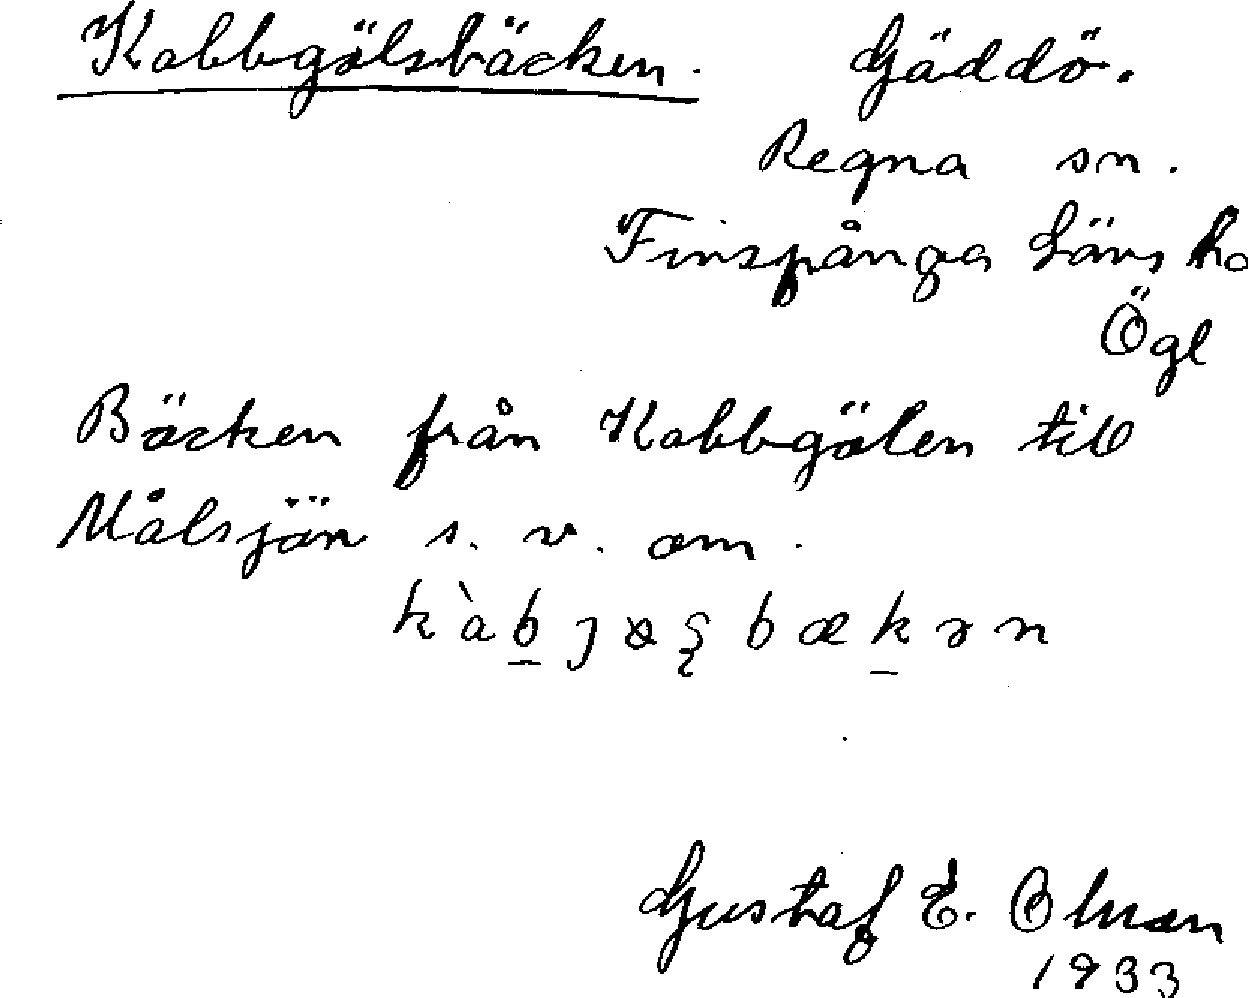 Kabbgölsbäcken. Gäddö.
Regna sn.
Finspånga läns hd
Ögl
Bäcken från Kabbgölen till
Målsjön s. v. om.
Gustaf E.
1933